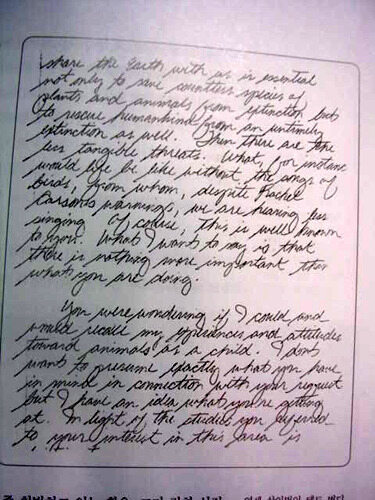 share the Earth with us is essential
not only to save countless species of
plants and animals from extinction but
to rescue humankind from an untimely
extinction as well. Then there are the
less tangible threats. What, for instance
would life be like without the songs of
birds, from whom, despite Rachel
Carson's warnings, we are hearing less
singing Of course, this is well known
to you. What I want to say is that
there is nothing more important than
what you are doing.
You were wondering if I could and
would recall my experiences and attitudes
toward animals as a child. I don't
want to presume exactly what you have
in mind in connection with your request
but I have an idea what you're getting
at. In light of the studies you referred
to your interest in this area is